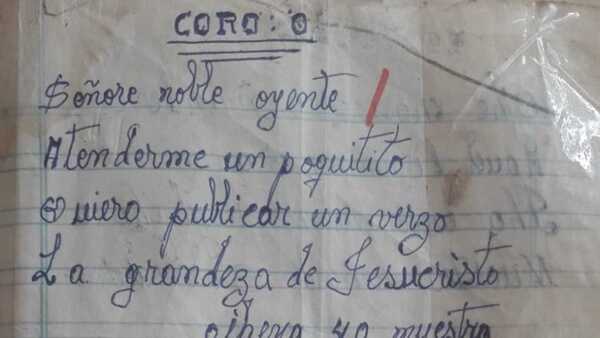 CORO: O
Señore noble oyente
Atenderme un poquitito
Quiero publicar un verzo
La grandeza de Jesucristo
yo muestra